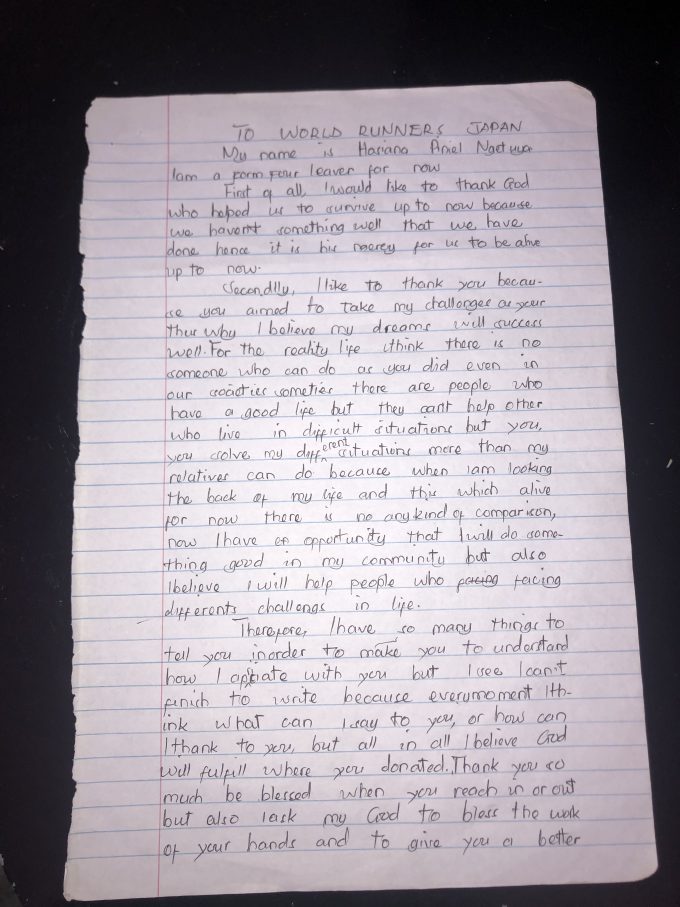 TO WORLD RUNNERS JAPAN
My name is Hariano Aniel
Iam a form four leaver for now
First of all, I would like to thank God
who helped us to survive up to now because
we havent something well that we have
done hence it is his mercy for us to be alive
up to now.
Secondlly, I like to thank you becau-
se you aimed to take my challenges as your
thus why I believe my dreams will success
well. For the reality life ithink there is no
someone who can do as you did even in
our someties there are people who
have a good life but they cant help other
who live in difficult situations but you,
you solve my different situations more than my
relatives can do because when iam looking
the back of my life and this which alive
for now there is no anykind of comparison,
now I have an opportunity that I will do some-
thing good in my community but also
Ibelieve I will help people who facing
differents challengs in life.
Therefore, I have so many things to
tell you inorder to make you to understand
how I with you but I see I can't
finish to write because everymoment Ith-
ink what can I say to you, or how can
I thank to you, but all in all I believe God
will fulfill where you donated. Thank you so
much be blessed when you reach in or out
but also Iask my God to bless the work
of your hands and to give you a better